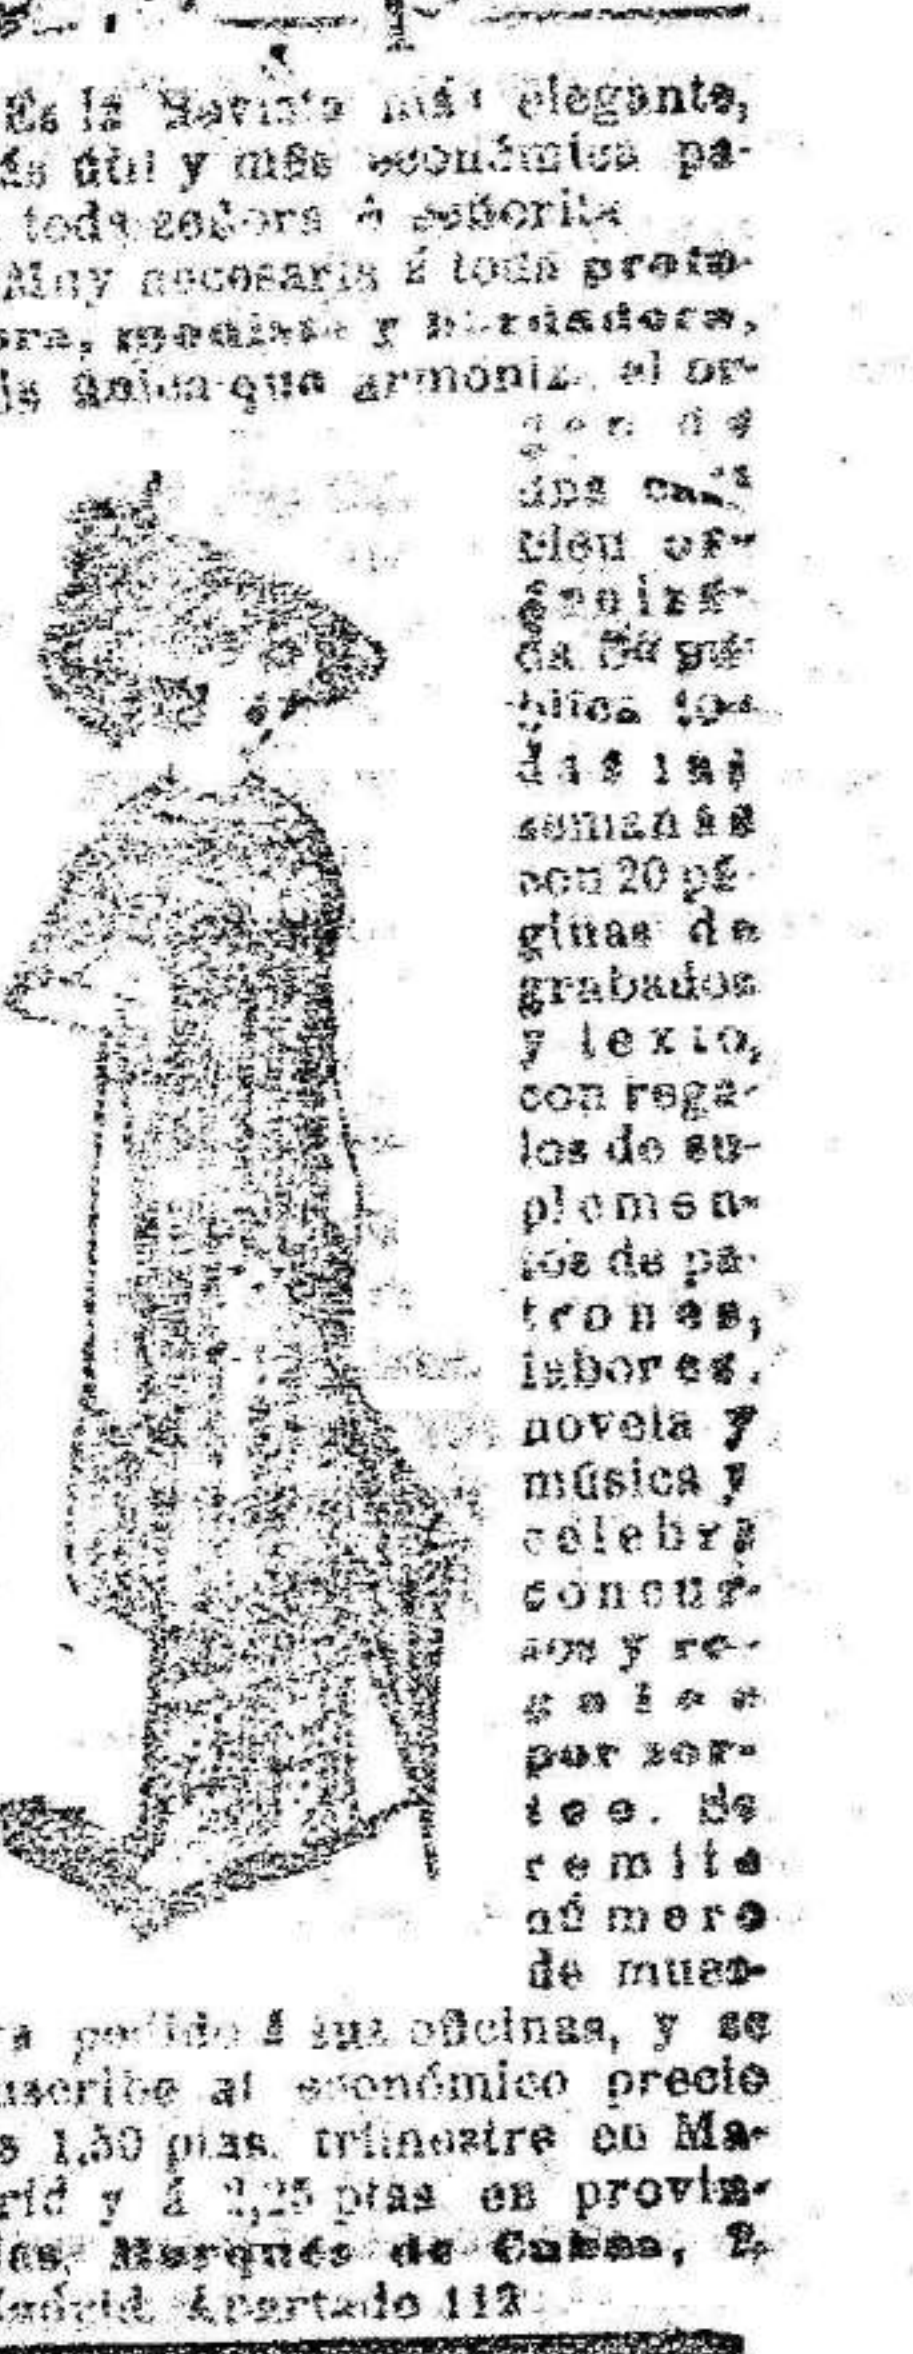 Es la Revista más elegante,
ás útil y más económica pa-
toda señora ó señorita
Muy necesaria á toda profe-
ora, modista y bordadora,
única que armoniz el or-
gen de
una casa
bien or-
ganiza-
da Se pu-
blica to-
das las
semanas
con 20 pá-
ginas de
grabados
y texto,
con rega-
los de su-
plemen-
tos de pa-
trones,
labores,
novela y
música y
celebra
concur-
sos y re-
galos
por sor-
teo. Se
remite
número
de mues-
ra pedido á sus oficinas, y se
uscribe al económico precio
s 1,50 ptas. trimestre en Ma-
rid y á 2,25 ptas en provin-
ias, Marqués de Cubas, 2,
Madrid Apartado 112